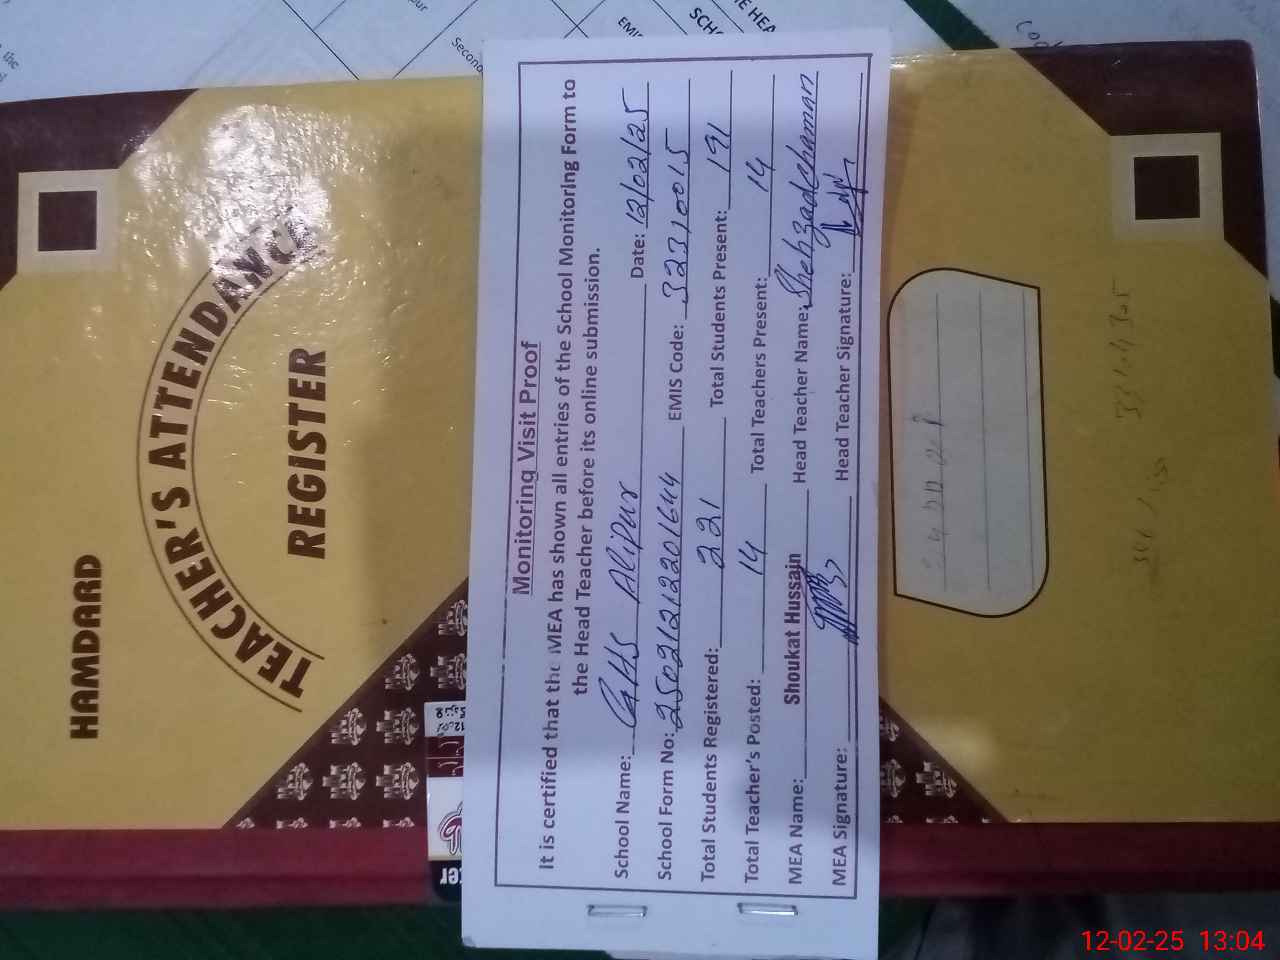 Monitoring Visit Proof
It is certified that the MEA has shown all entries of the School Monitoring Form to
the Head Teacher before its online submission.
School Name: GHS Alipur Date: 12/02/25
School Form No: EMIS Code: 32310015
Total Students Registered: 221 Total Students Present: 191
Total Teacher's Posted: 14 Total Teachers Present: 14
MEA Name: Shoukat Hussain Head Teacher Name: Shehzad chaman
MEA Signature: Head Teacher Signature:
HAMDARD
TEACHER'S ATTENDANCE
REGISTER
EMIS
12-02-25 13:04